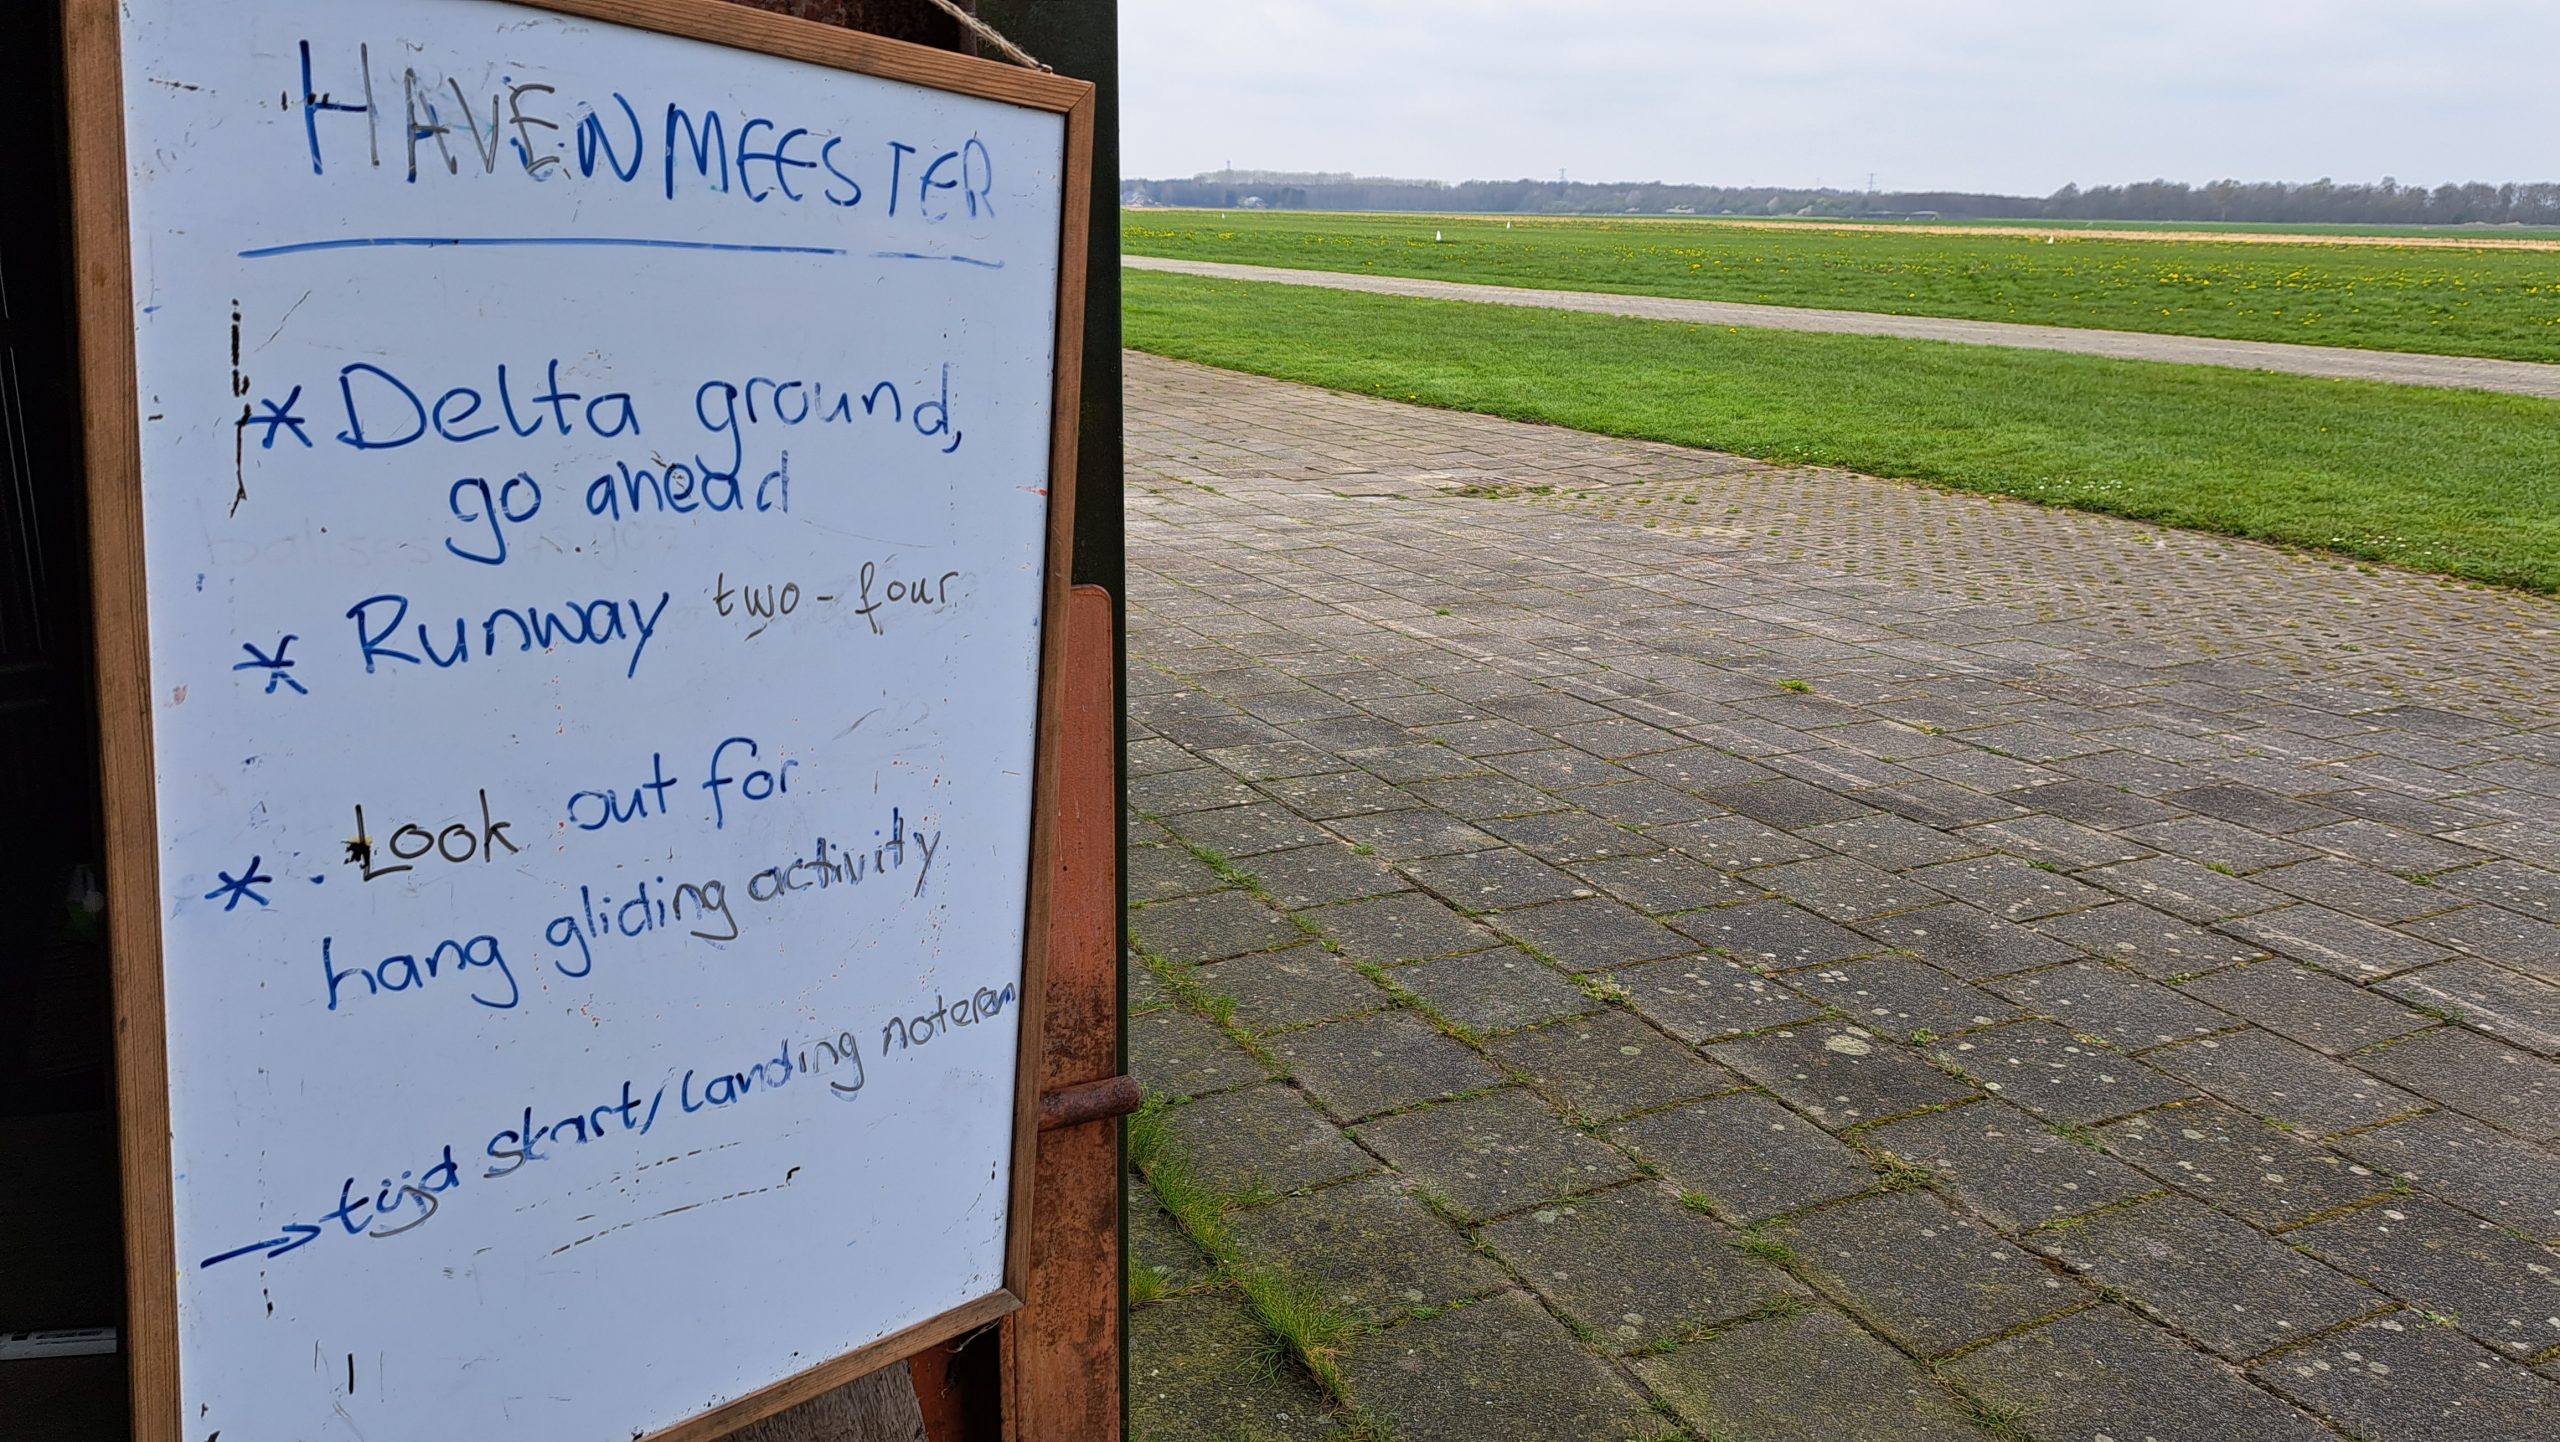 HAVENMEESTER
* Delta ground,
go ahead
* Runway two-four
* . Look out for
hang gliding activity
→ tijd start/landing noteren